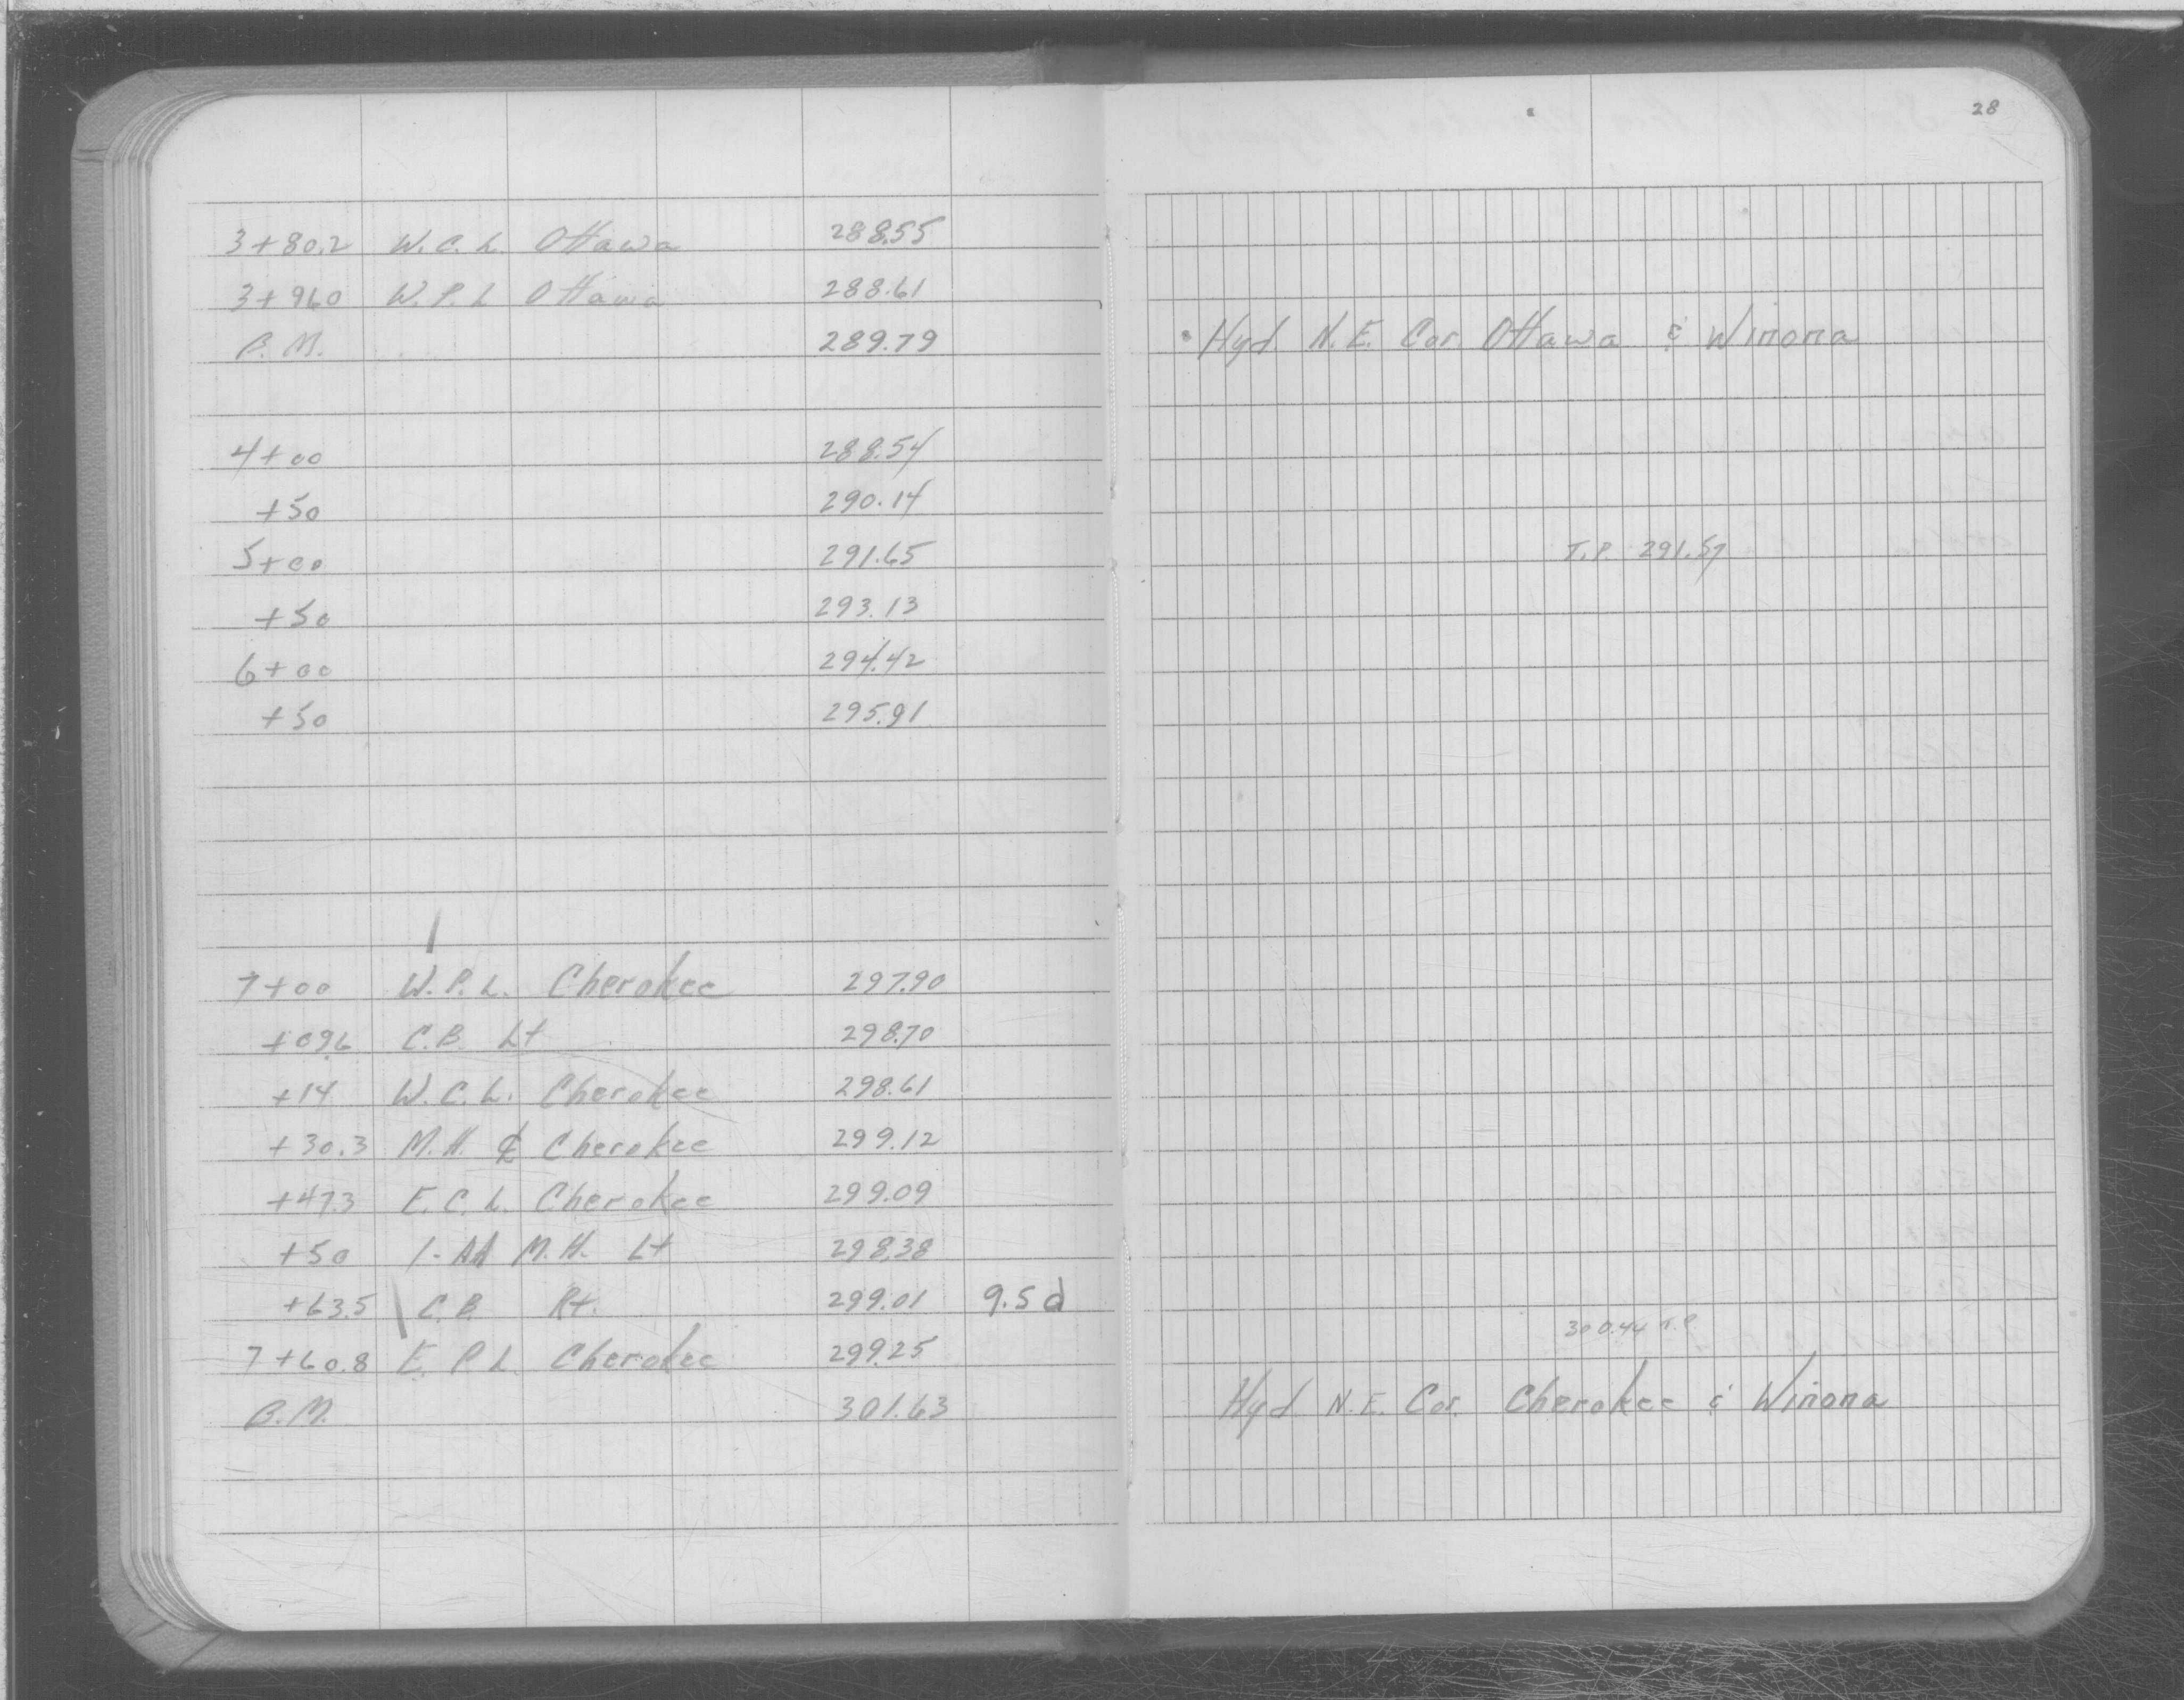 28
3+80.2 W.C.L. Ottawa 288.55
3+960 W.P.L Ottawa 288.61
B.M. 289.79 Hyd. N.E. Cor. Ottawa & Winona
4+00 288.54
+50 290.14
5+00 291.65 T.P. 291.57
+50 293.13
6+00 294.42
+50 295.91
7+00 W.P.L. Cherokee 297.90
+09.6 C.B. Lt 298.70
+14 W.C.L. Cherokee 298.61
+30.3 M.H. ₵ Cherokee 299.12
+47.3 E.C.L. Cherokee 299.09
+50 1-AA M.H. Lt 298.38
+63.5 C.B. Rt. 299.01 9.5d
300.44 T.P.
7+60.8 E.P.L. Cherokee 299.25
B.M. 301.63 Hyd. N.E. Cor. Cherokee & Winona